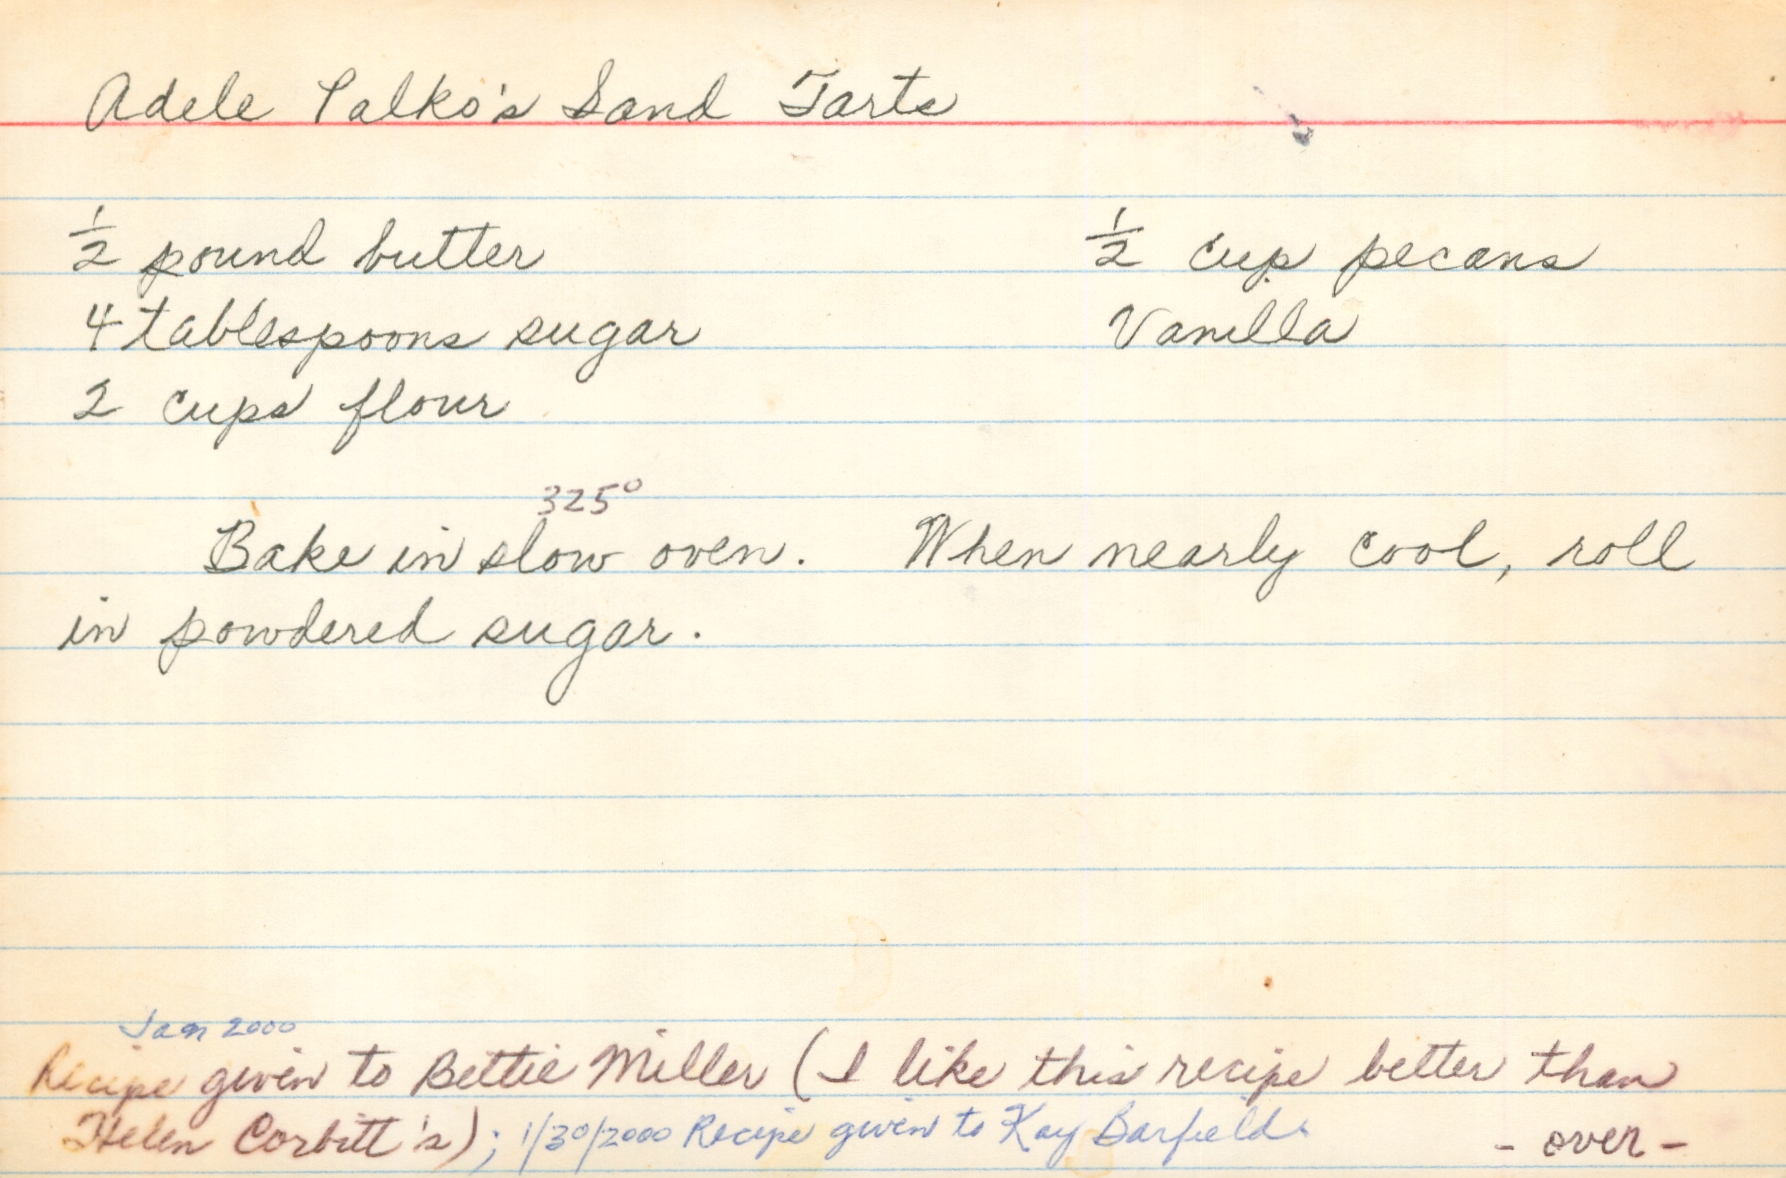 Adele Palko's Sand Tarts
1/2 pound butter
4 tablespoons sugar
2 cups flour
1/2 cup pecans
Vanilla
325°
Bake in slow oven. When nearly cool, roll
in powdered sugar.
Jan 2000
Recipe given to Bettie Miller (I like this recipe better than
Helen Corbitt's); 1/30/2000 Recipe given to Kay Barfield
- over -